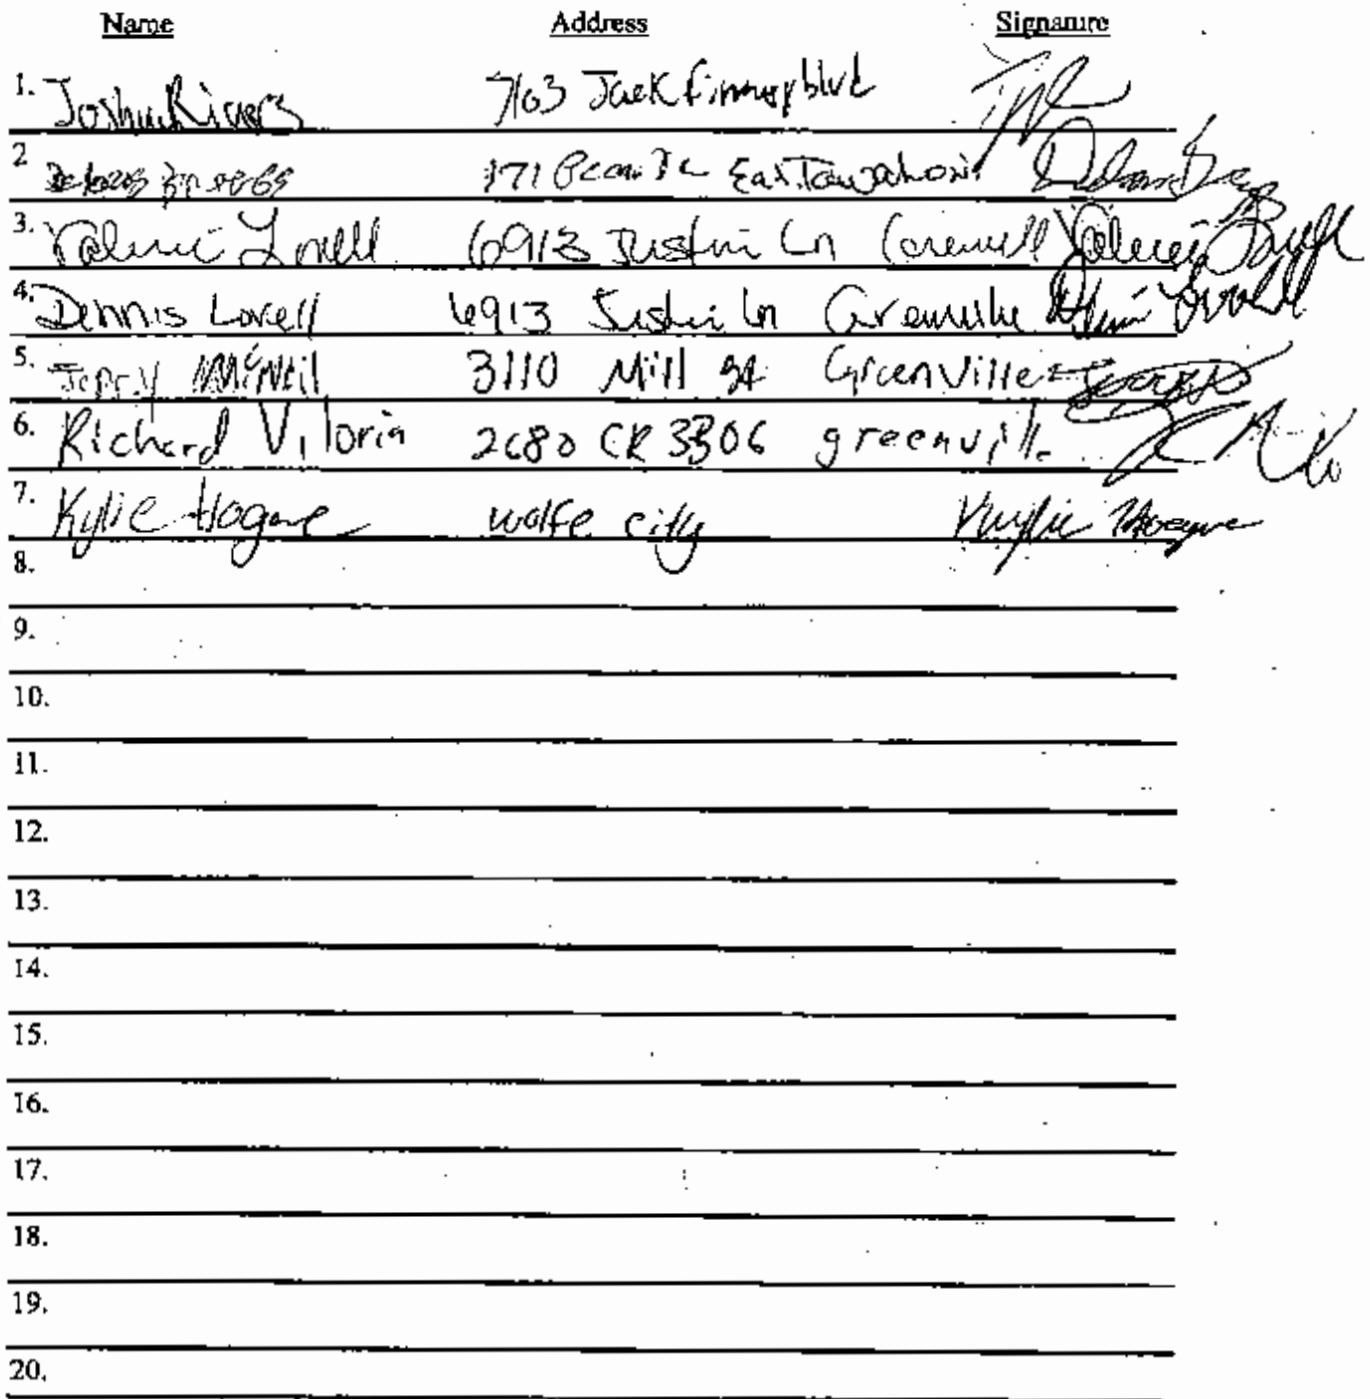 Name Address Signature
1. Joshua Rivers 7103 Jack Finney blvd
2 171 East Tawakoni
3. Valerie Lovell 6913 Justin Ln Greenvill Valerie Lovell
4. Dennis Lovell 6913 Justin Ln Greenville
5. Jerry McNeil 3110 Mill St Greenville
6. Richard Viloria 2680 CR 3306 greenville
7. Kylie Hogue wolfe city Kylie Hogue
8.
9.
10.
11.
12.
13.
14.
15.
16.
17.
18.
19.
20.